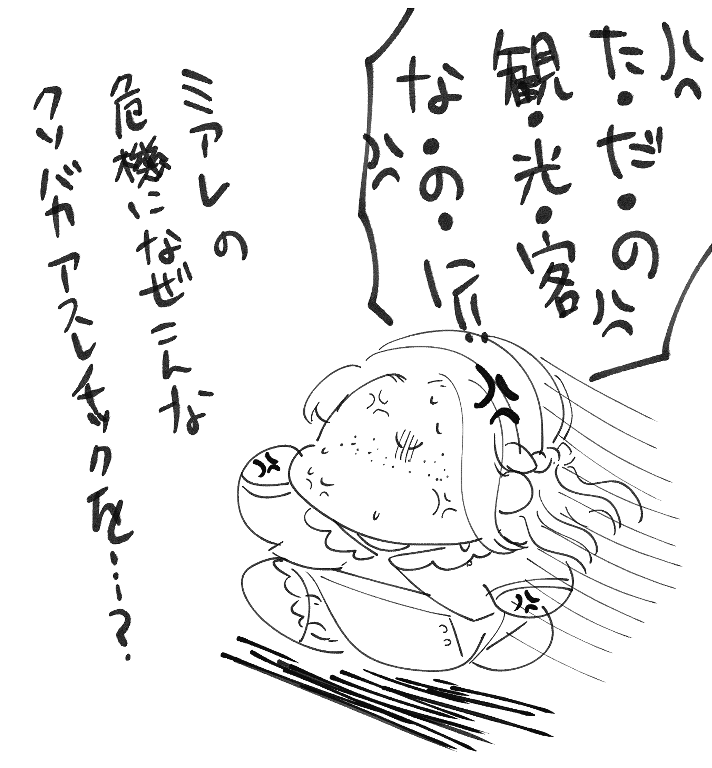 た・だ・の
観・光・客
な・の・に!!
ミアレの
危機になぜこんな
クソバカアスレチックを…?